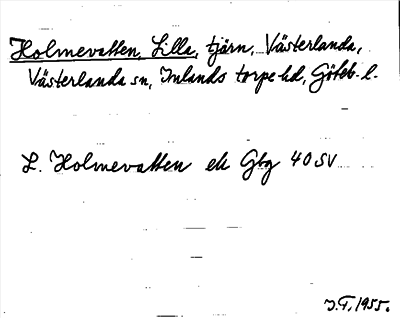 Holmevatten, Lilla, tjärn, Västerlanda,
Västerlanda sn, Inlands torpe hd, Göteb. l.
L. Holmevatten ek Gbg 40 SV
J.F. 1955.